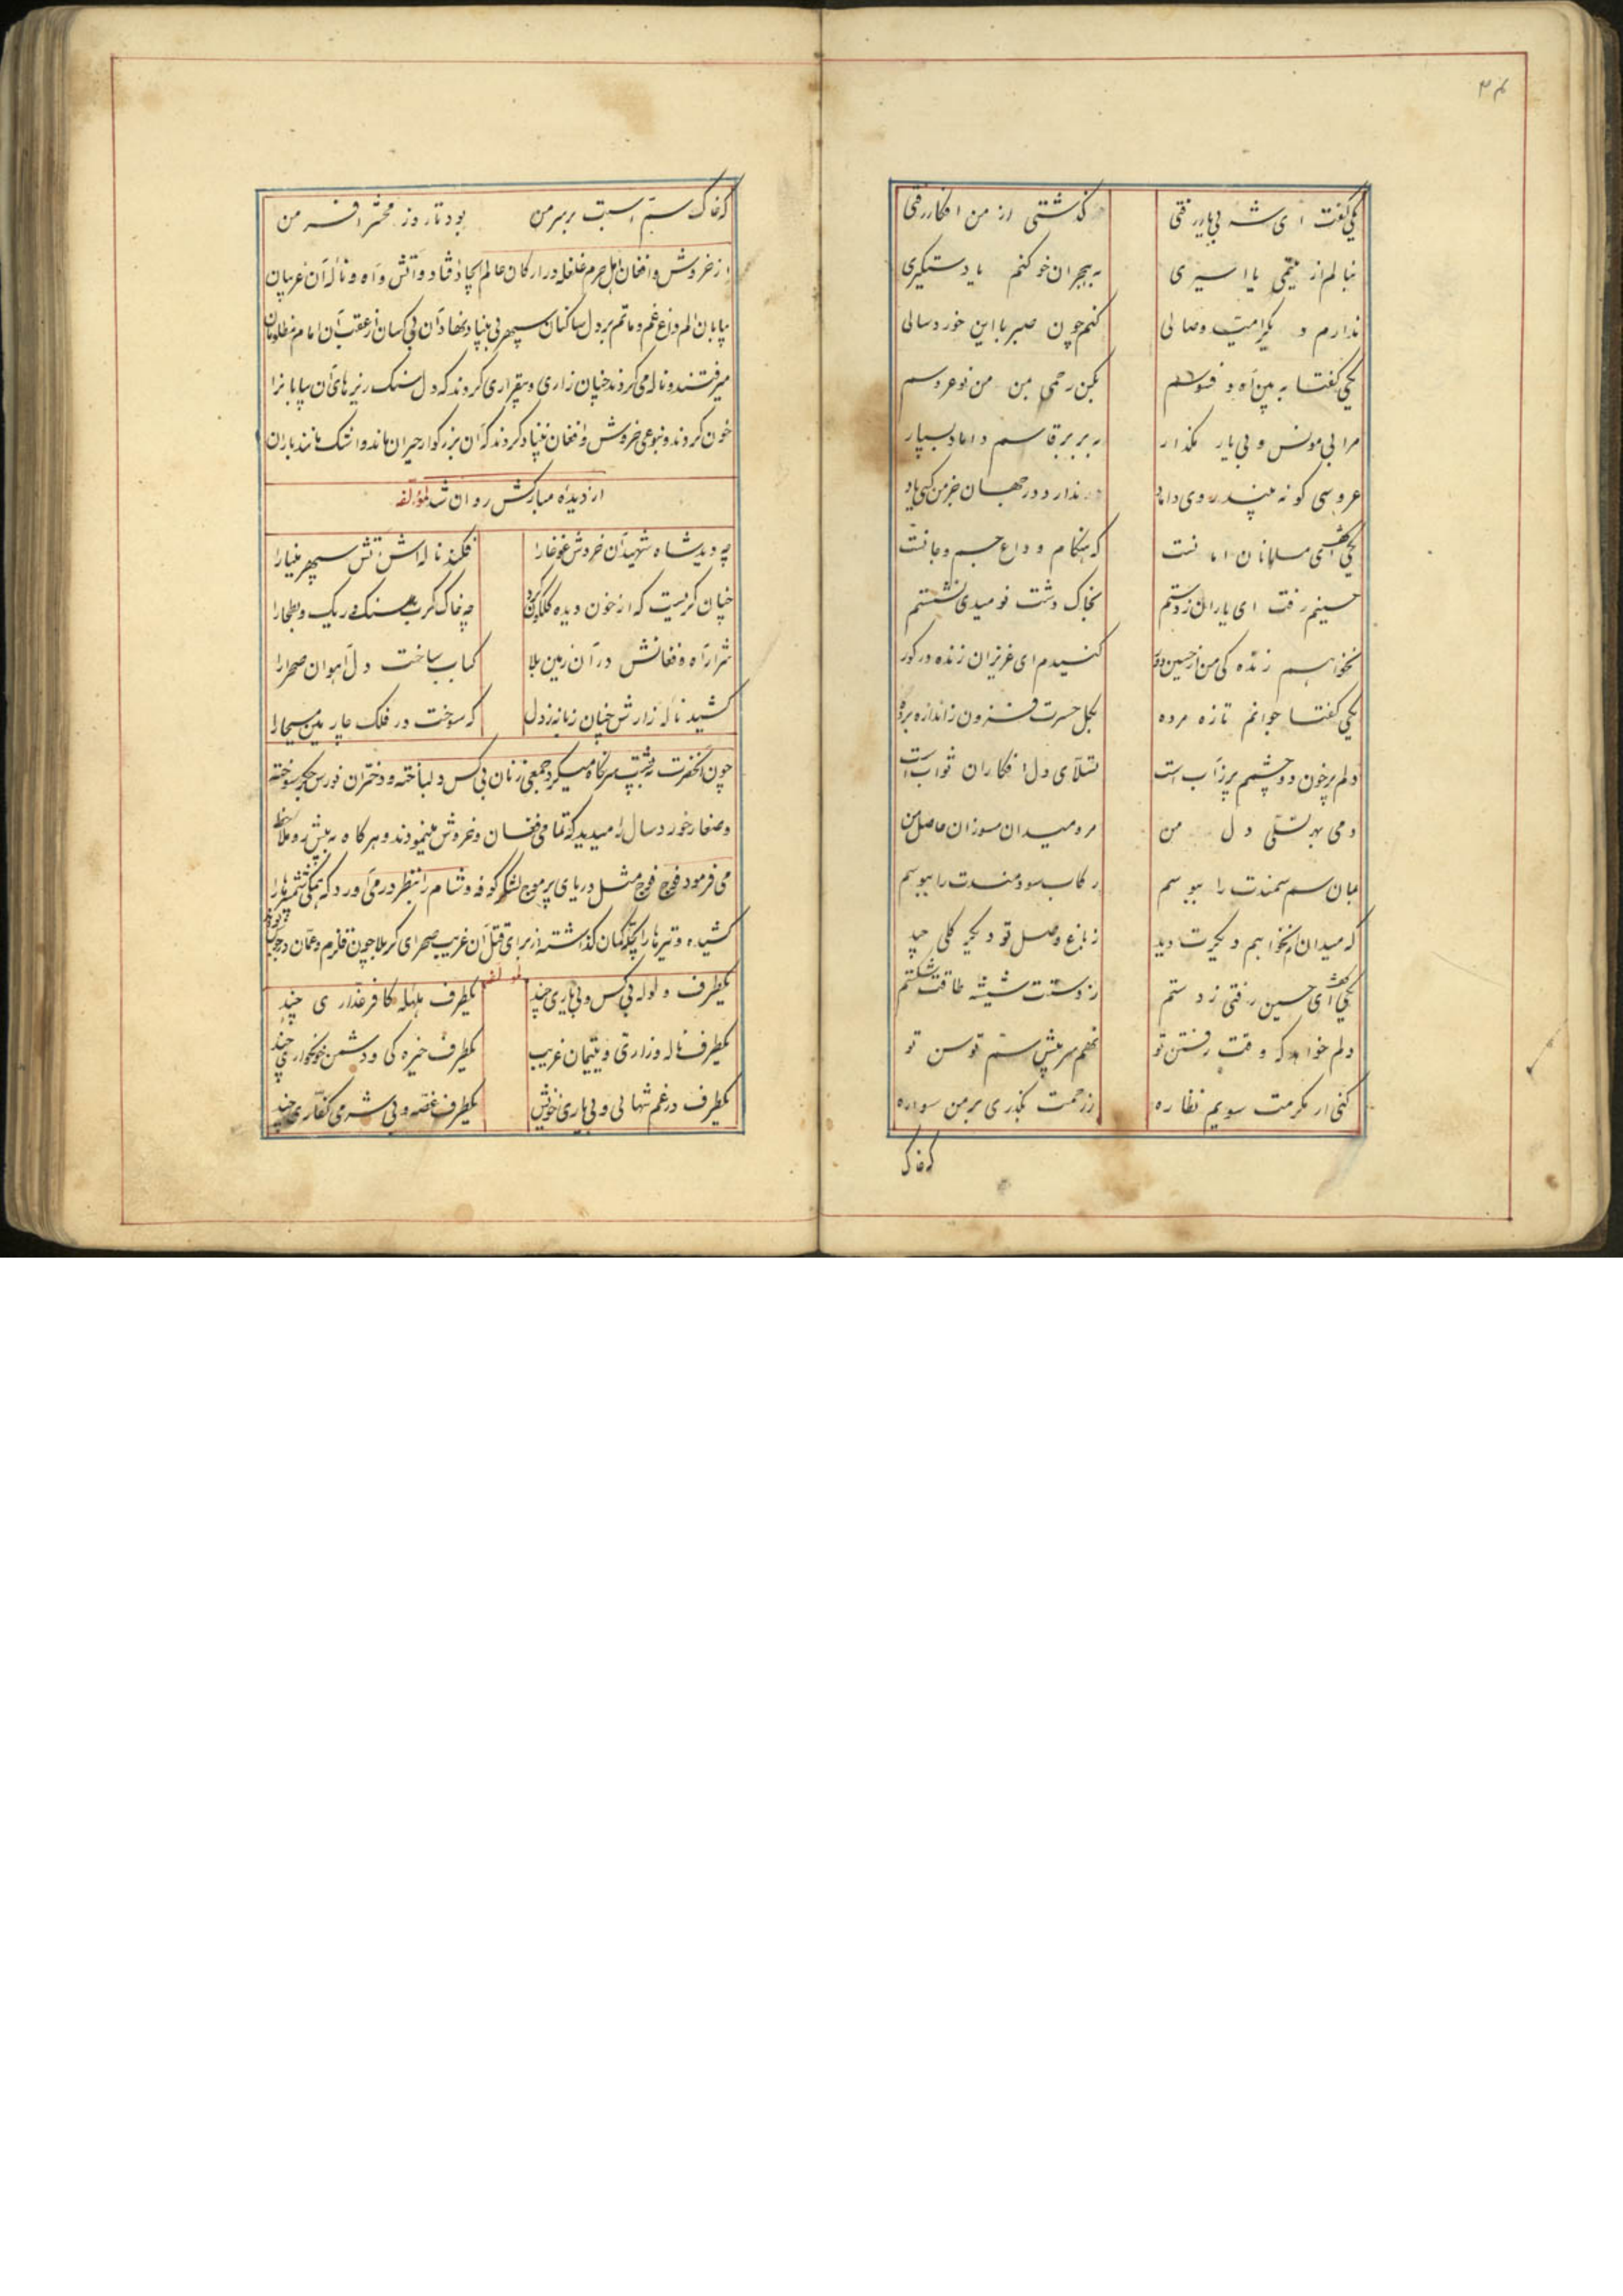 یکی گفت ای شه بی یار رفتی گذشتی از من افکار رفتی
بنالم از یتیمی یا اسیری به هجران خو کنم یا دستگیری
ندارم و یکرامیت وصالی کنم چون صبر با این خورد سالی
یکی گفتا به بین آه و فسوسم بکن رحمی بمن من نوعروسم
مرا بی مونس و بی یار مکذار به بر بر قاسم داماد بسپار
عروسی کو نه بیند روی داماد ندارد در جهان جز من کسی یاد
یکی گفت ای مسلمانان امانست که هنکام وداع جسم و جانست
حسینم رفت ای یاران ز دستم بخاک دشت نومیدی نشستم
نخواهم زنده کی من از حسین دور کنیدم ای عزیزان زنده در کور
یکی گفتا جوانم تازه مرده بکل حسرت فزون ز اندازه برده
دلم پرخون و دو چشمم پر ز آب است تسلّای دل افکاران ثواب است
دمی بهر تسلّی دل من مرو میدان مسوزان حاصل من
بمان سم سمندت را ببوسم رکاب سودمندت را ببوسم
که میدانم نخواهم دیگرت دید ز باغ وصل تو دیگر کلی چید
یکی گفت ای حسین رفتی ز دستم ز دستت شیشه طاقت شکستم
دلم خواهد که وقت رفتن تو نهم سر پیش سم توسن تو
کنی از مکرمت سویم نظاره ز رحمت بگذری بر من سواره
که خاک
که خاک سم اسبت بر سر من بود تا روز محشر افسر من
از خروش و افغان اهل حرم غلغله در ارکان عالم ایجاد فتاد و آتش و آه و ناله آن غریبان
بیابان الم داغ غم و ماتم بر دل ساکنان سپهر بی بنیاد نهاد آن بی کسان از عقب آن امام مظلومان
میرفتند و ناله می کردند چنان زاری و بیقراری کردند که دل سنک ریزهای آن بیابان را
خون کردند و بنوعی خروش و افغان بنیاد کردند که آن بزرکوار حیران ماند و اشک مانند باران
از دیده مبارکش روان شد لمؤلّفه
چه دید شاه شهیدان خروش و غوغا را فکند ناله اش آتش سپهر مینا را
چنان کریست که از خون دیده کلکون کرد چه خاک کرب و سنک و ریک و بطحا را
شرار آه و فغانش در آن زمین بلا کباب ساخت دل آهوان صحرا را
کشید ناله زارش چنان زبانه ز دل که سوخت در فلک چارمین مسیحا را
چون آنحضرت به عقب سر نکاه میکرد جمعی زنان بی کس و لباخته و دختران نورس جکر سوخته
و صغار خورد سال را میدید که تمامی فغان و خروش مینمودند و هرکاه به پیش رو ملاحظه
می فرمود فوج فوج مثل دریای پر موج لشکر کوفه و شام را بنظر در می آورد که همکی شمشیرها را
کشیده و تیرها را بچلّه کمان کذاشته از برای قتل آن غریب صحرای کربلا چون قلزم و عمّان
لمولفه
یکطرف ولوله بی کس و بی یاری چند یکطرف هلهله کافر غدّاری چند
یکطرف ناله و زاری و یتیمان غریب یکطرف خیره کی و دشمن خونخواری چند
یکطرف در غم تنهائی و بی یاری خویش یکطرف غصّه و بی شرمی کفّاری چند